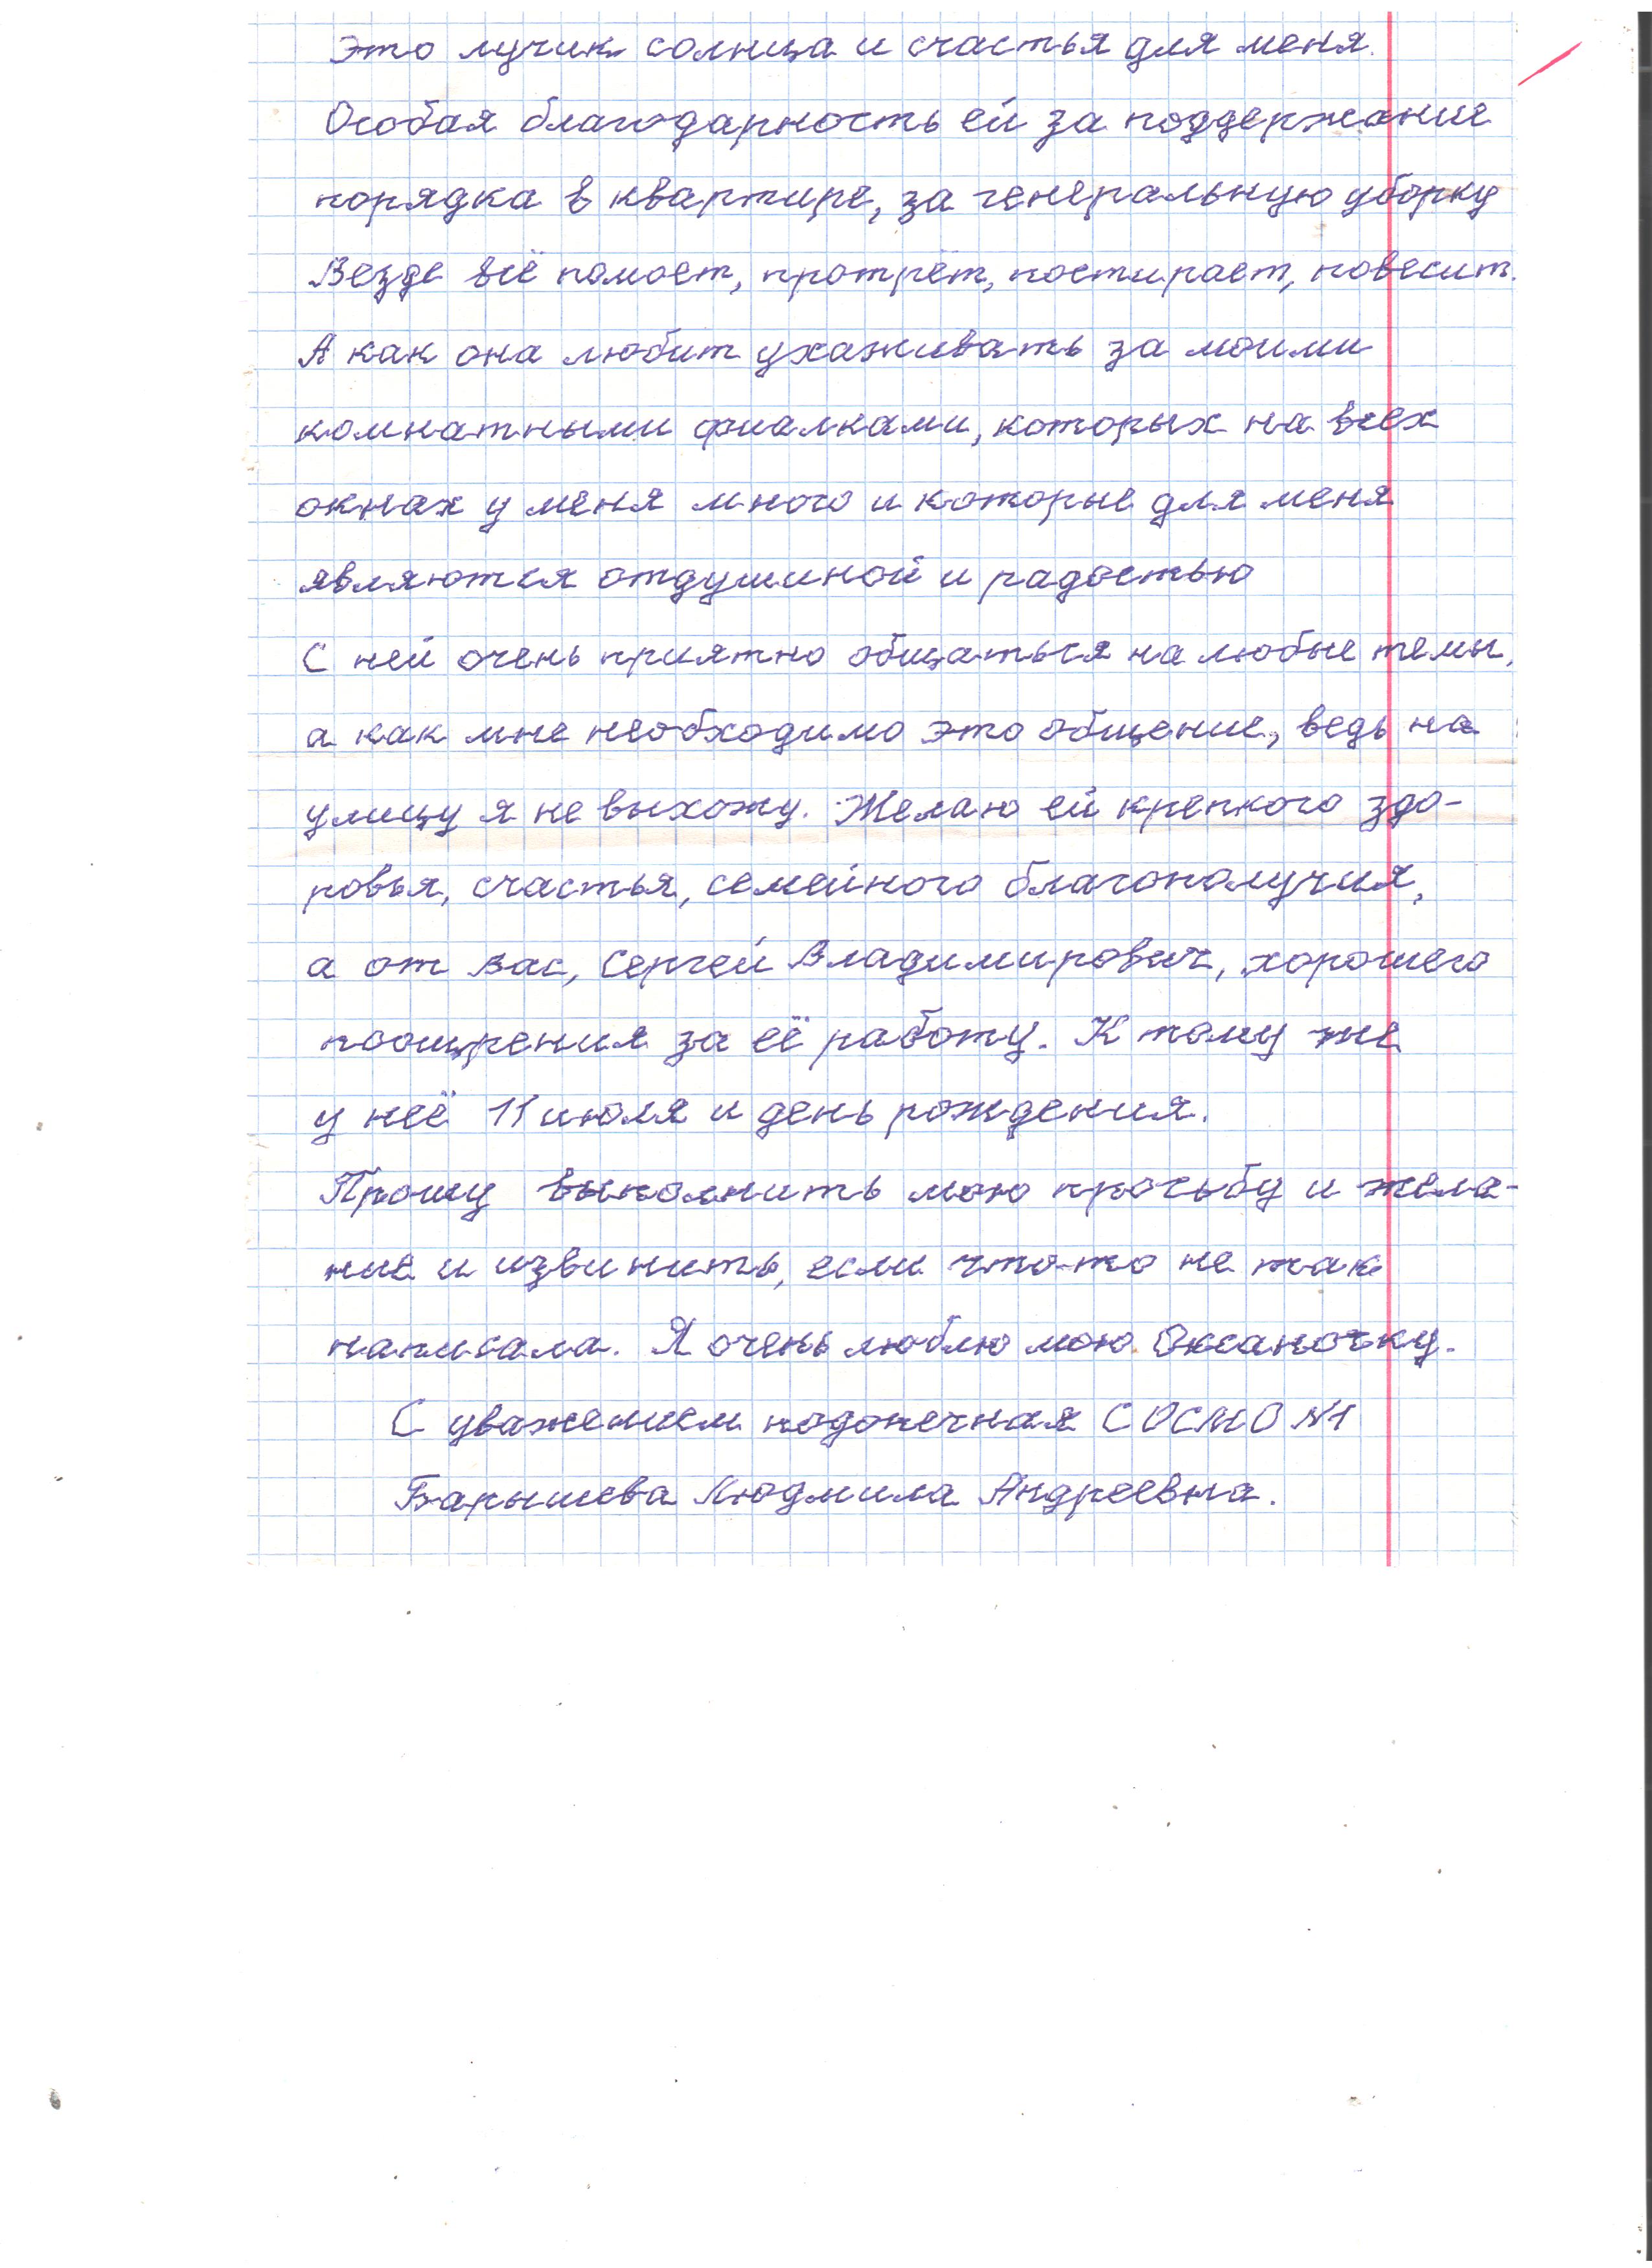 Это лучик солнца и счастья для меня.
Особая благодарность ей за поддержание
порядка в квартире, за генеральную уборку
Везде всё помоет, протрёт, постирает, повесит.
А как она любит ухаживать за моими
комнатными фиалками, которых на всех
окнах у меня много и которые для меня
являются отдушиной и радостью
С ней очень приятно общаться на любые темы,
а как мне необходимо это общение, ведь на
улицу я не выхожу. Желаю ей крепкого здо-
ровья, счастья, семейного благополучия,
а от Вас, Сергей Владимирович, хорошего
поощрения за её работу. К тому же
у неё 11 июля и день рождения.
Прошу выполнить мою просьбу и жела-
ние и извинить, если что-то не так
написала. Я очень люблю мою Оксаночку.
С уважением подопечная СОСМО №1
Барышева Людмила Андреевна.